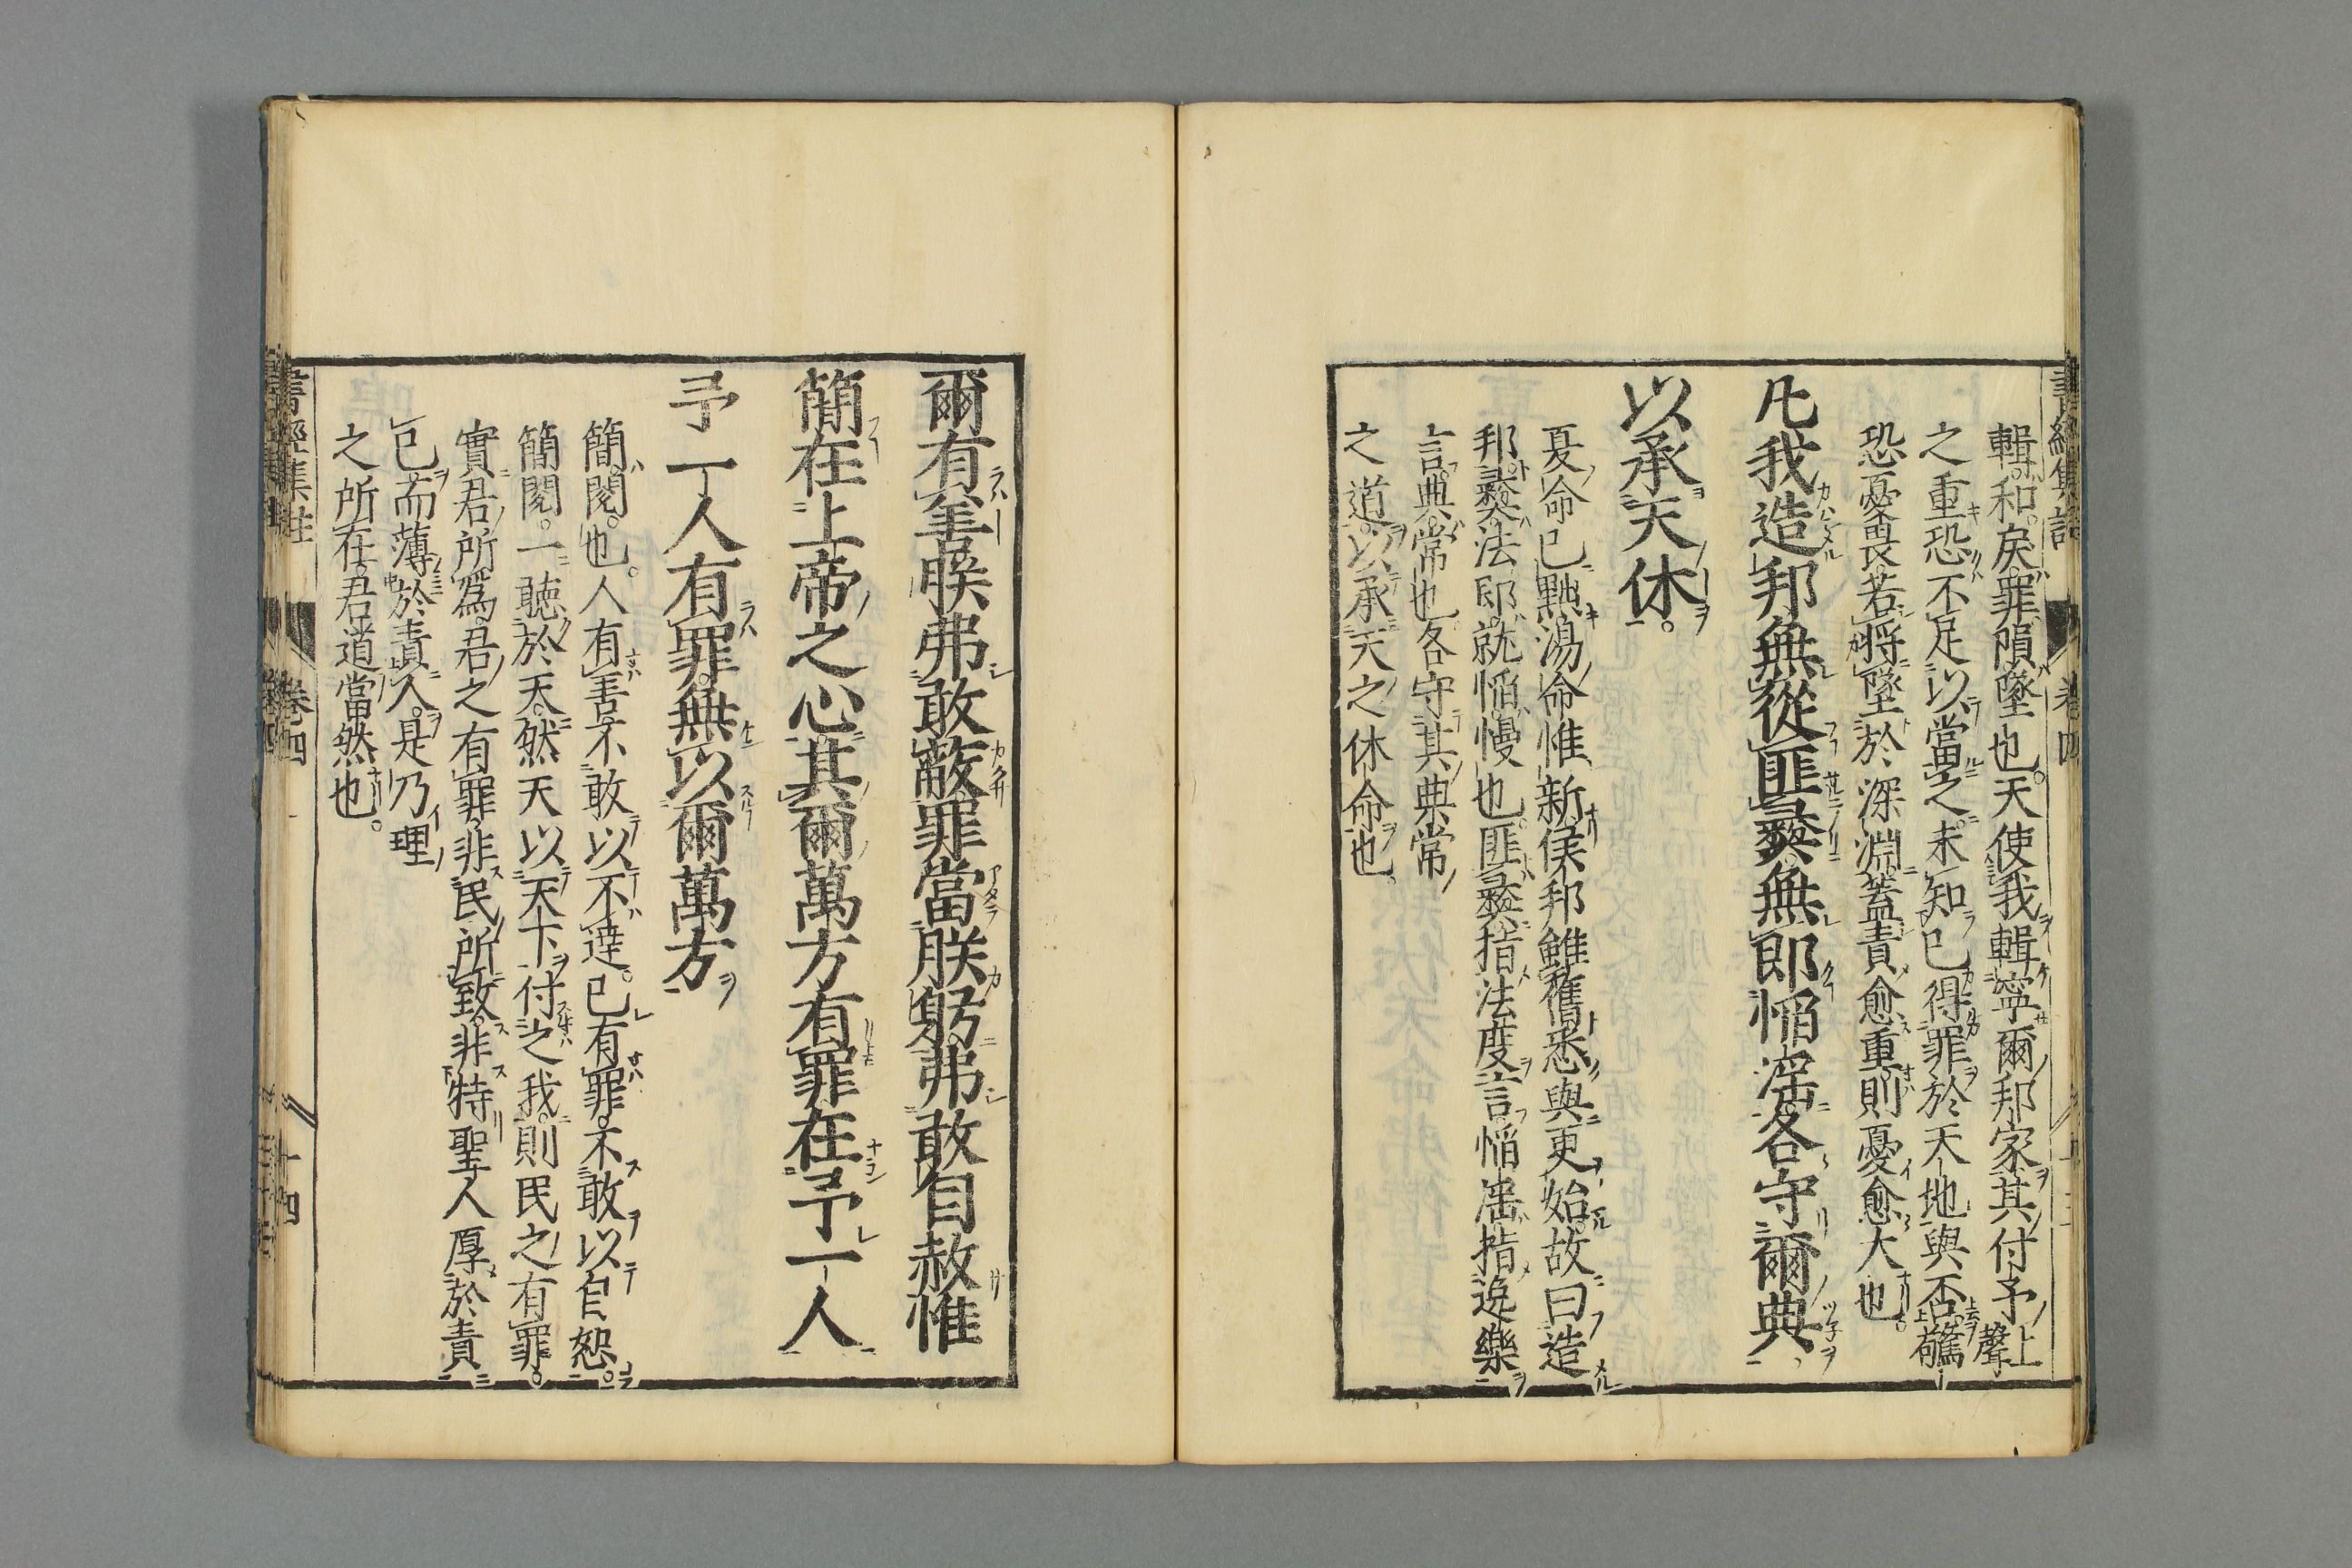 輯和戾罪隕墜也天使我輯寧爾邦家其付予上聲
之重恐不足以當之未知已得罪於天地與否驚
恐憂畏若將墜於深淵蓋責愈重則憂愈大也
凡我造邦無從匪彝無卽慆滛各守爾典
以承天休
夏命已黜湯命惟新侯邦雖舊悉與更始故曰造
邦彝法卽就慆慢也匪彝指法度言慆滛指逸樂
言典常也各守其典常
之道以承天之休命也
爾有善朕弗敢蔽罪當朕躬弗敢自赦惟
簡在上帝之心其爾萬方有罪在予一人
予一人有罪無以爾萬方
簡閱也人有善不敢以不達已有罪不敢以自恕
簡閱一聽於天然天以天下付之我則民之有罪
實君所爲君之有罪非民所致非特聖人厚於責
已而薄於責人是乃理
之所在君道當然也
書經集註 卷四 十四